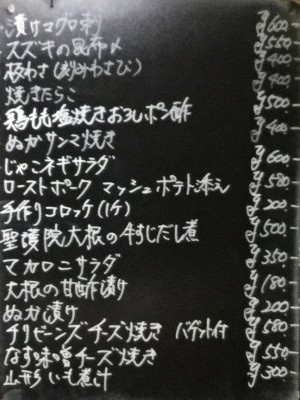 漬けマグロ刺 ¥600
スズキの昆布〆 ¥550
板わさ(刻みわさび) ¥400
焼きたらこ ¥400
鶏もも塩焼きおろしポン酢 ¥500
ぬかサンマ焼き ¥400
じゃこネギサラダ ¥600
ローストポーク マッシュポテト添え ¥580
手作りコロッケ(1ケ) ¥200
聖護院大根の牛すじだし煮 ¥500
マカロニサラダ ¥350
大根の甘酢漬け ¥180
ぬか漬け ¥200
チリビーンズチーズ焼き バゲット付 ¥580
なす味噌チーズ焼き ¥550
山形いも煮汁 ¥300